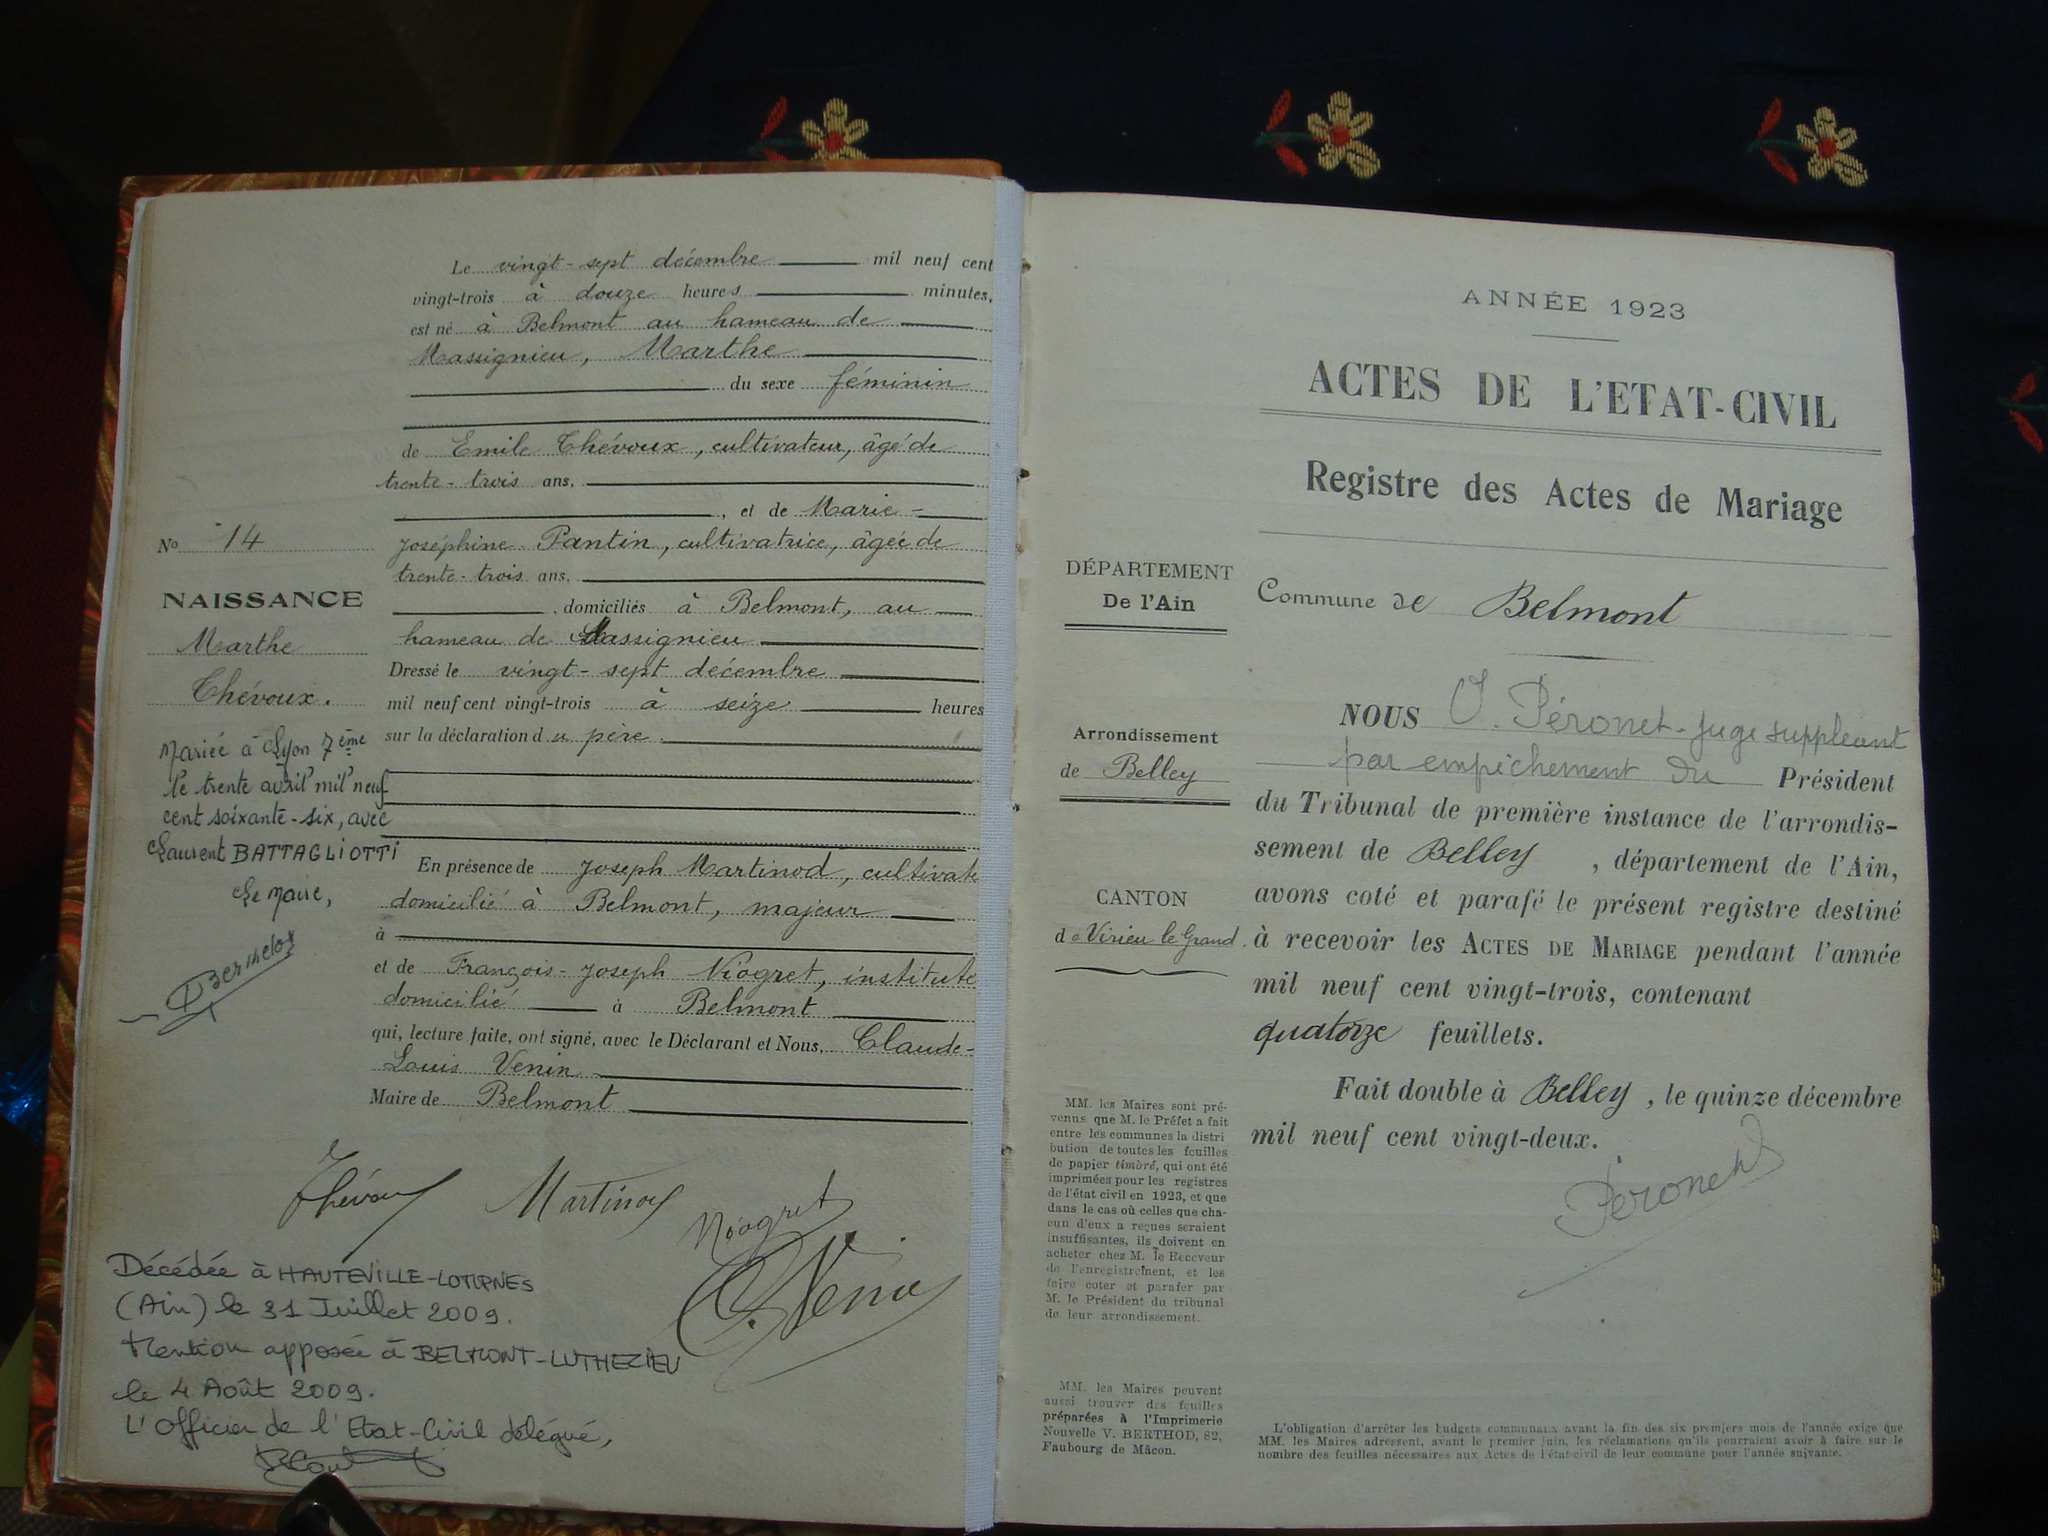 Le vingt-sept décembre mil neuf cent
vingt-trois à douze heures minutes,
est né à Belmont au hameau de
Massignieu, Marthe
du sexe féminin
de Emile Thévoux, cultivateur, âgé de
trente-trois ans,
, et de Marie-
Joséphine Pantin, cultivatrice, âgée de
trente-trois ans,
, domiciliés à Belmont, au
hameau de Massignieu
Dressé le vingt-sept décembre
mil neuf cent vingt-trois à seize heures
sur la déclaration du père.
En présence de Joseph Martinod, cultivate
domicilié à Belmont, majeur
à
et de François-Joseph Niogret, institute
domicilié à Belmont
qui, lecture faite, ont signé, avec le Déclarant et Nous, Claude-
Louis Venin
Maire de Belmont
No 14
NAISSANCE
Marthe
Thévoux.
Mariée à Lyon 7ème
le trente avril mil neuf
cent soixante-six, avec
Laurent BATTAGLIOTTI
Le Maire,
Thévoux Martinod
Niogret
C. Venin
Décédée à HAUTEVILLE-LOMPNES
(Ain) le 31 Juillet 2009.
Mention apposée à BELMONT-LUTHEZIEU
le 4 Août 2009.
L'Officier de l'Etat-Civil délégué,
ANNÉE 1923
ACTES DE L'ETAT-CIVIL
Registre des Actes de Mariage
DÉPARTEMENT
De l'Ain
Commune de Belmont
Arrondissement
de Belley
CANTON
de Virieu le Grand
NOUS Péronet-juge suppléant
par empêchement du Président
du Tribunal de première instance de l'arrondis-
sement de Belley, département de l'Ain,
avons coté et parafé le présent registre destiné
à recevoir les ACTES DE MARIAGE pendant l'année
mil neuf cent vingt-trois, contenant
quatorze feuillets.
Fait double à Belley, le quinze décembre
mil neuf cent vingt-deux.
Péronet
MM. les Maires sont pré-
venus que M. le Préfet a fait
entre les communes la distri
bution de toutes les feuilles
de papier timbré, qui ont été
imprimées pour les registres
de l'état civil en 1923, et que
dans le cas où celles que cha-
cun d'eux a reçues seraient
insuffisantes, ils doivent en
acheter chez M. le Receveur
de l'enregistrement, et les
faire coter et parafer par
M. le Président du tribunal
de leur arrondissement.
MM. les Maires peuvent
aussi trouver des feuilles
préparées à l'Imprimerie
Nouvelle V. BERTHOD, 82,
Faubourg de Mâcon.
L'obligation d'arrêter les budgets communaux avant la fin des six premiers mois de l'année exige que
MM. les Maires adressent, avant le premier juin, les réclamations qu'ils pourraient avoir à faire sur le
nombre des feuilles nécessaires aux Actes de l'état-civil de leur commune pour l'année suivante.